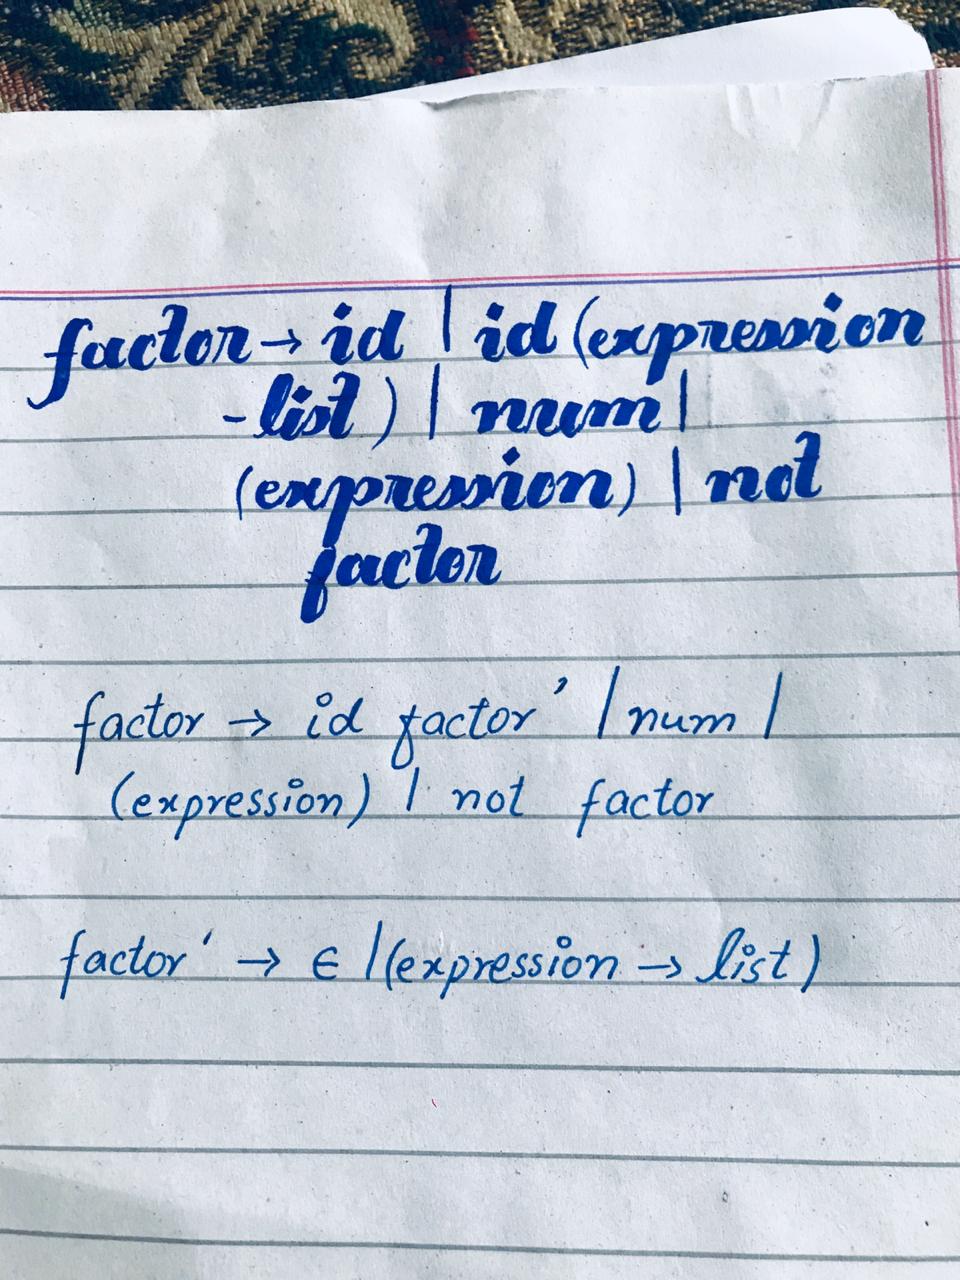 factor → id | id (expression
-list) | num |
(expression) | not
factor
factor → id factor' | num |
(expression) | not factor
factor' → ∈ | (expression → list)